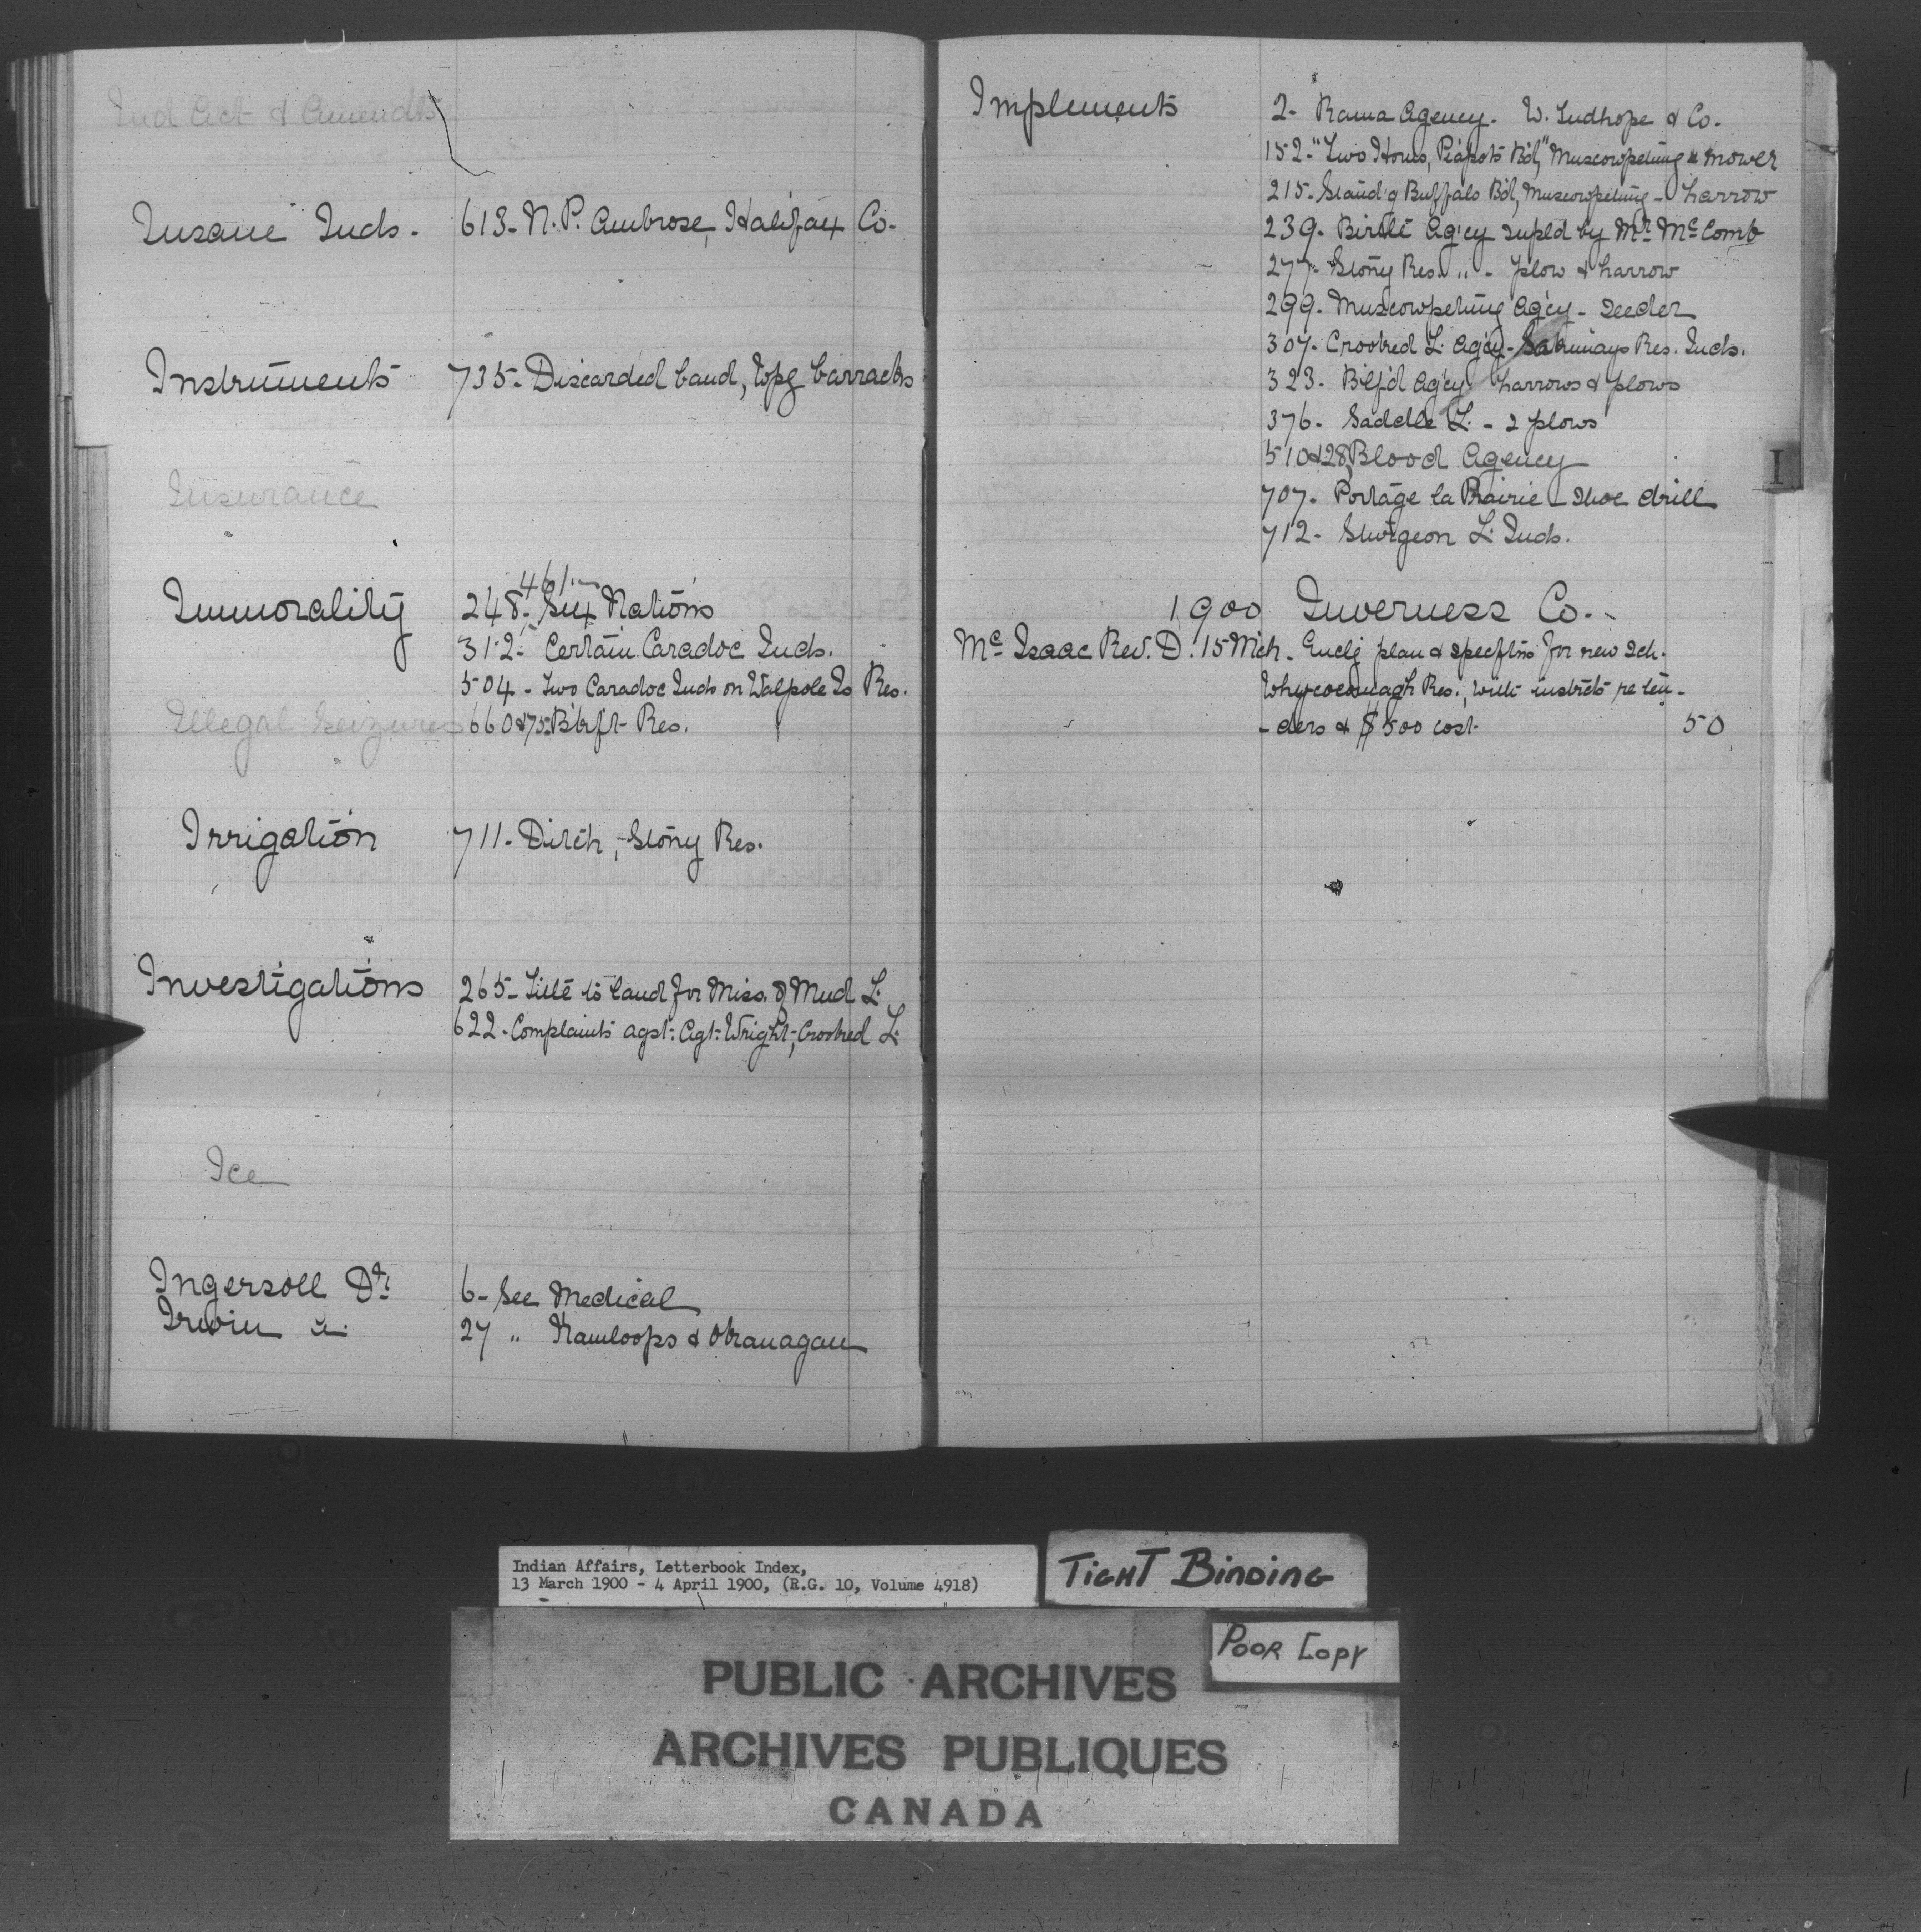 Ind Act & Amendts
Insane Inds. 613- N.P. Ambrose, Halifax Co.
Instruments 735- Discarded band, Wpg barracks
Insurance
461
Immorality 248- Six Nations
312- Certain Caradoc Inds.
504- Two Caradoc Inds on Walpole Is Res.
Illegal Seizures 660&75 Res.
Irrigation 711- Ditch, Stony Res.
Investigations 265- Title to land for Miss. of Mud L.
622- Complaints agst. Agt. Wright, Crooked L.
Ice
Ingersoll Dr. 6- See Medical
Irwin A. 27 " Kamloops & Okanagan
Implements 2- Rama Agency. W. Tudhope & Co.
152- "Two Horns, Piapots Bd," Muscowpetung mower
215- Stand'g Buffalo Bd, Muscowpetung - harrow
239- Birtle Ag'cy supld by Mr. McComb
277- Stony Res. " - plow & harrow
299- Muscowpetung Ag'cy - Seeder
307- Crooked L. Ag'cy - Sakimays Res. Inds.
323- Ag'cy harrows & plows
376- Saddle L. - 2 plows
510&28 Blood Agency
707- Portage la Prairie - Shoe drill
712- Sturgeon L. Inds.
I
1900 Inverness Co.
McIsaac Rev. D. 15 Mch. Enclg plan & specftns for new sch.
Whycocomagh Res., with instrcts re ten-
-ders & $500 cost. 50
Indian Affairs, Letterbook Index,
13 March 1900 - 4 April 1900, (R.G. 10, Volume 4918)
TIGHT BINDING
POOR COPY
PUBLIC ARCHIVES
ARCHIVES PUBLIQUES
CANADA